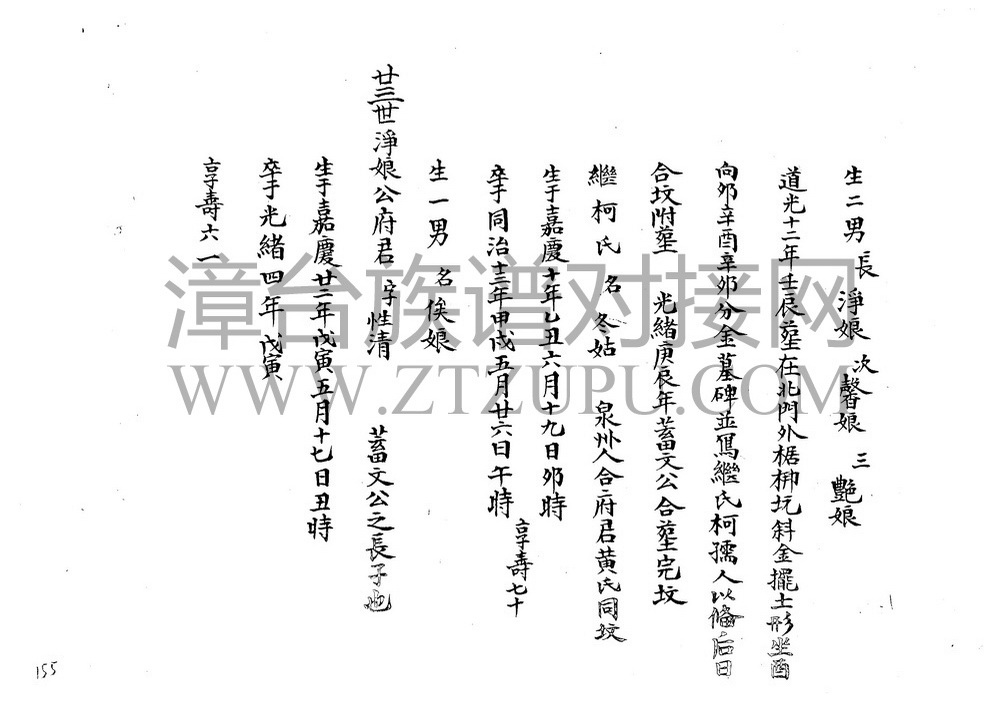 生二男 長 淨娘 次 馨娘 三 艷娘
道光十二年壬辰塟在北門外椐柳坑斜金擺土形坐酉
向夘辛酉辛夘分金墓碑並寫繼氏柯孺人以俻后日
合坟附塟 光緒庚辰年蓄文公合塟完坟
繼柯氏 名 冬姑 泉州人合府君黄氏同坟
生于嘉慶十年乙丑六月十九日夘時
卒于同治十三年甲戌五月廿六日午時 享壽七十
生一男 名 俟娘
廿三世淨娘公府君 字 性清 蓄文公之長子也
生于嘉慶廿二年戊寅五月十七日丑時
卒于光緒四年戊寅
享壽六一
漳台族谱对接网
WWW.ZTZUPU.COM
155